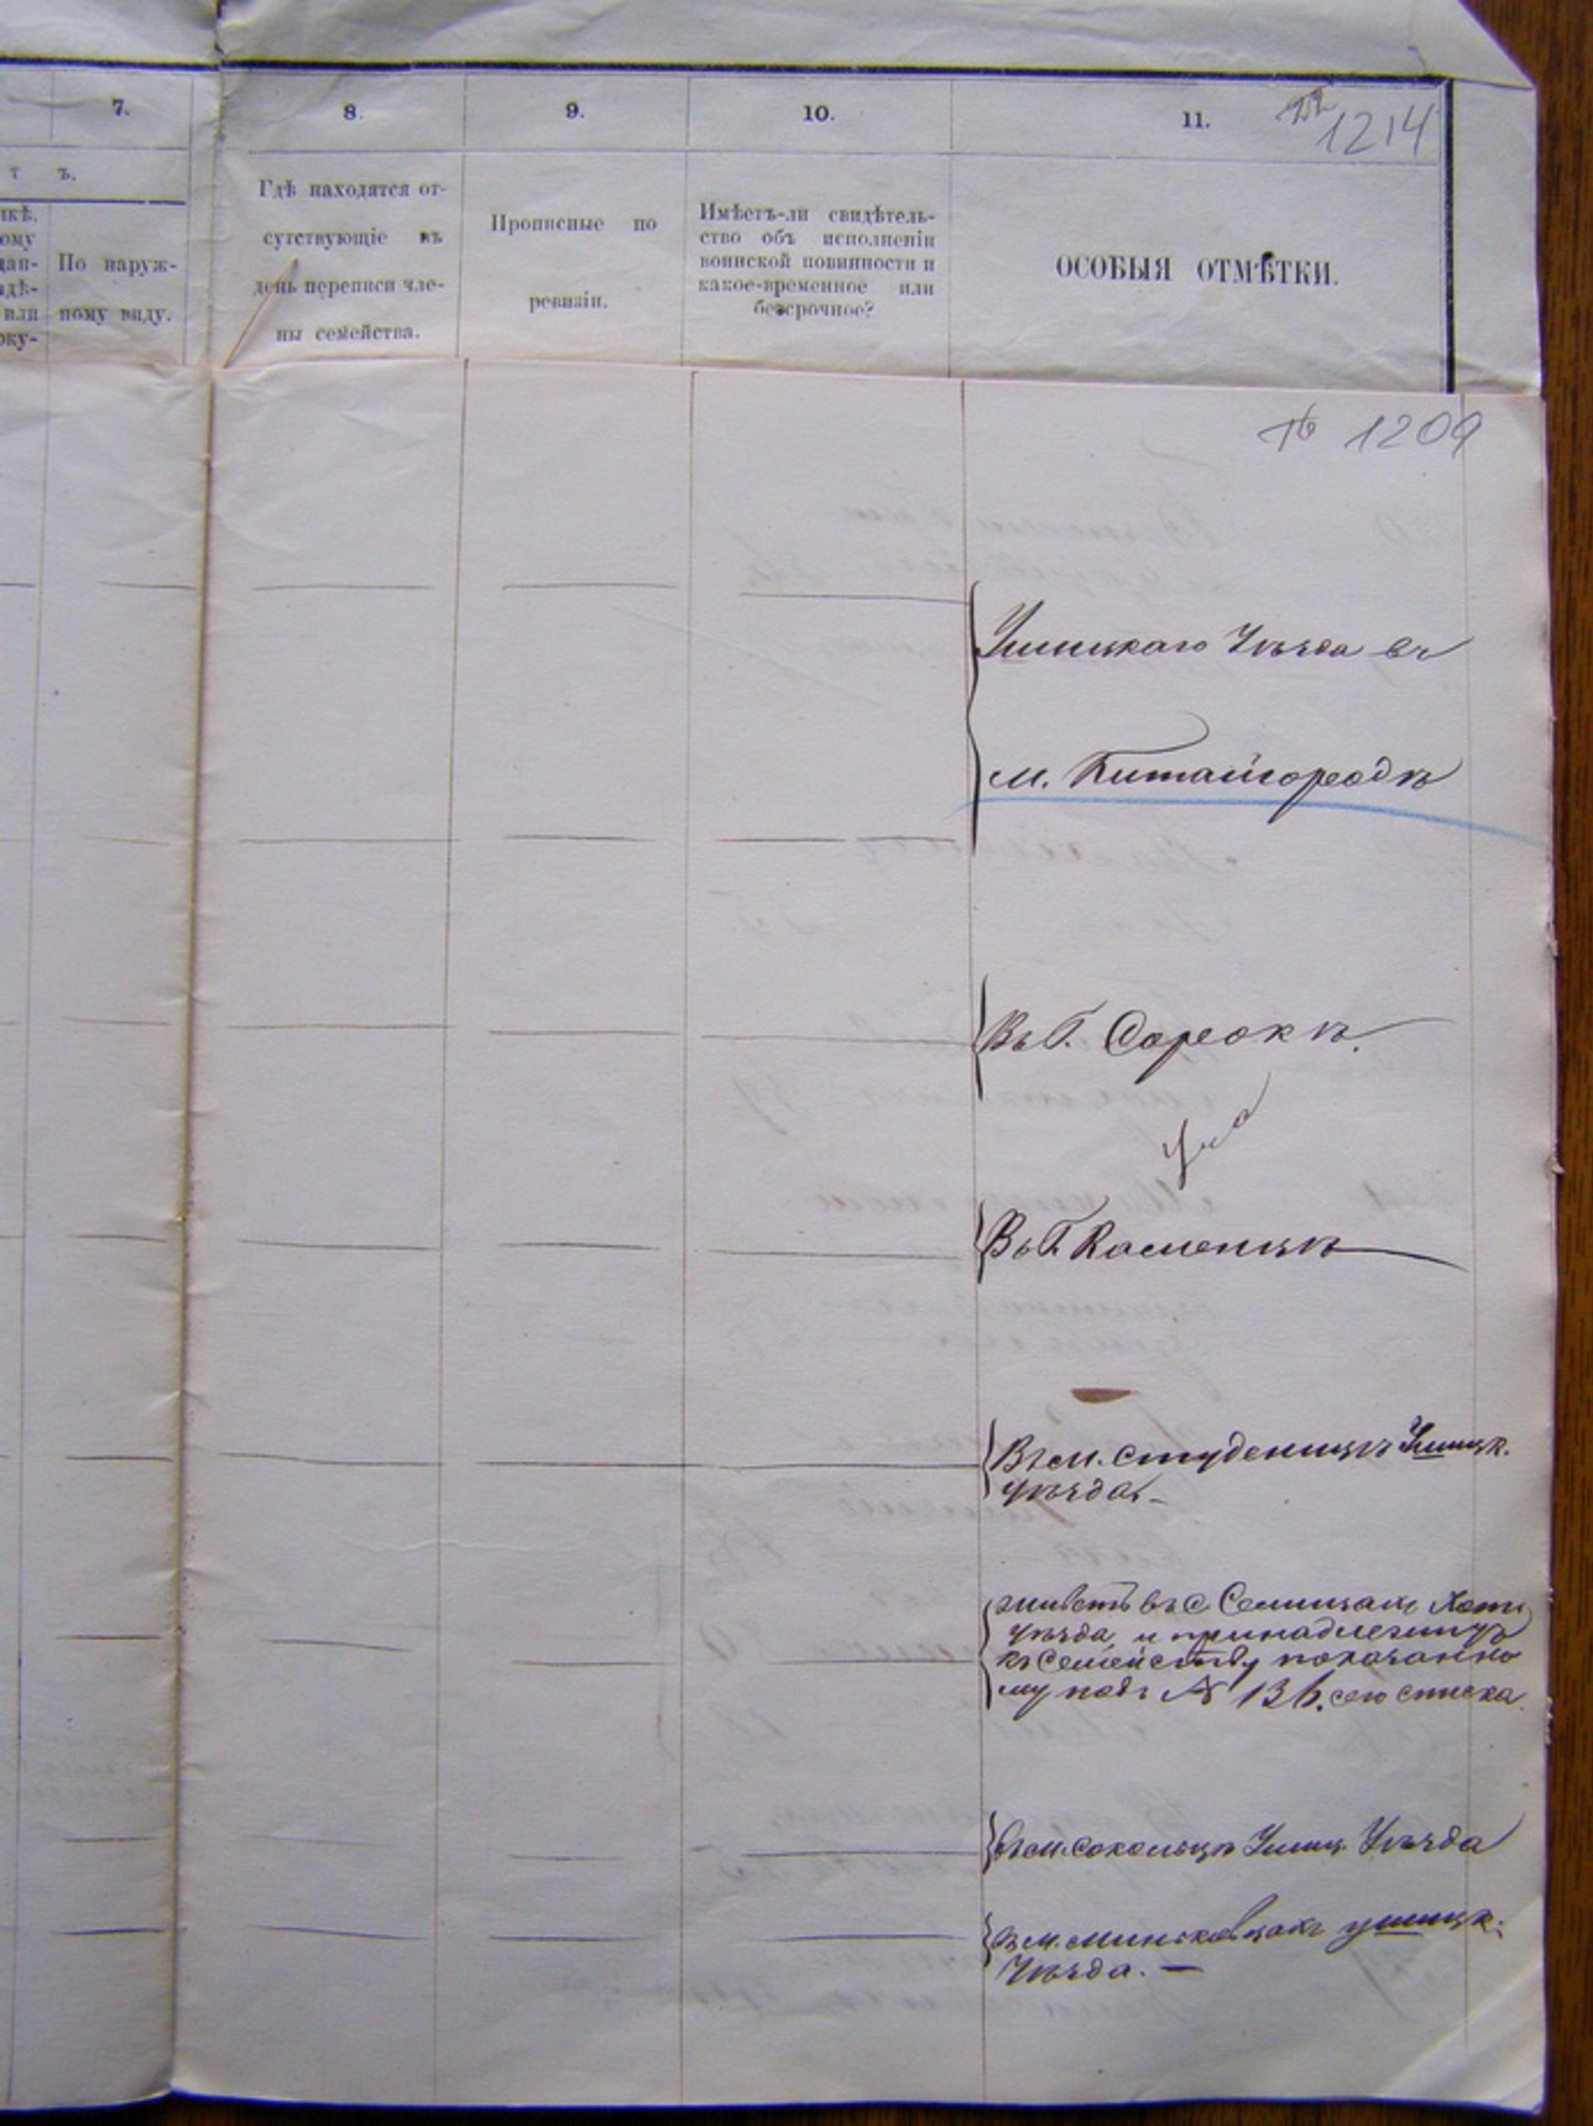 7.
8.
9.
10.
11.
1214
т ъ.
По наруж-
ному виду.
Гдѣ находятся от-
сутствующіе въ
день переписи чле-
ны семейства.
Прописные по
ревизіи.
Имѣетъ-ли свидѣтель-
ство объ исполненіи
воинской повинности и
какое-временное или
безсрочное?
ОСОБЫЯ ОТМѢТКИ.
1209
Ушицкаго Уѣзда въ
м. Китайгородѣ
Въ Г. Сорокѣ.
Въ Г. Каменцѣ
Въ м. Студеницѣ Ушицк.
уѣзда. –
живетъ въ с Селищахъ Хоти
уѣзда и принадлежитъ
къ семейству показанно
му подъ № 136. сего списка
въ м. Сокольцѣ Ушиц. Уѣзда
въ м. Миньковцахъ ушицк.
Уѣзда. –